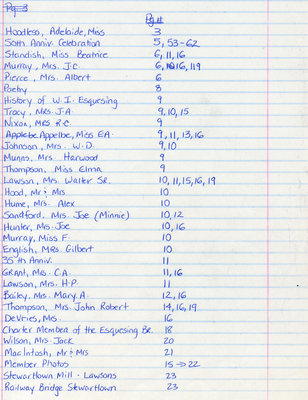 Pg. 3
Pg #
Hoodless, Adelaide, Miss 3
50th Anniv. Celebration 5, 53-62
Standish, Miss Beatrice 6, 11, 16
Murray, Mrs. J.C. 6, 16, 119
Pierce, Mrs. Albert 6
Poetry 8
History of W.I. Esquesing 9
Tracy, Mrs. J.A. 9, 10, 15
Nixon, Mrs R.C. 9
Appelbe, Miss E.A. 9, 11, 13, 16
Johnson, Mrs. W.D. 9, 10
Munns, Mrs Harwood 9
Thompson, Miss Elma 9
Lawson, Mrs. Walter Sr. 10, 11, 15, 16, 19
Hood, Mr & Mrs 10
Hume, Mrs. Alex 10
Sandford, Mrs. Joe (Minnie) 10, 12
Hunter, Mrs. Joe 10, 16
Murray, Miss F. 10
English, Mrs. Gilbert 10
35th Anniv. 11
Grant, Mrs. C.A. 11, 16
Lawson, Mrs. H.P. 11
Bailey, Mrs. Mary A. 12, 16
Thompson, Mrs. John Robert 14, 16, 19
DeVries, Mrs. 16
Charter Member of the Esquesing Br. 18
Wilson, Mrs. Jack 20
MacIntosh, Mr & Mrs 21
Member Photos 15 → 22
Stewarttown Mill - Lawsons 23
Railway Bridge Stewarttown 23